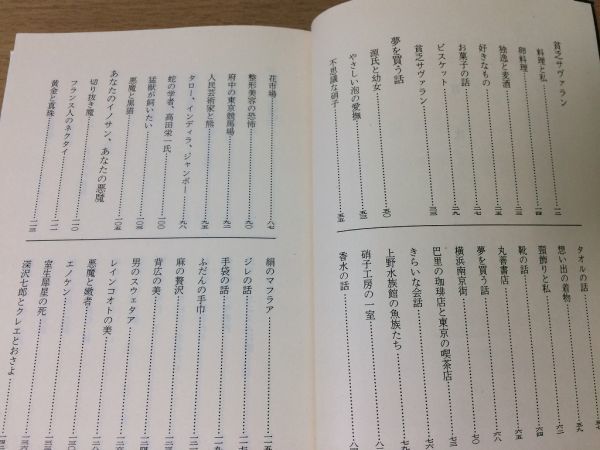 貧乏サヴァラン
料理と私……一二
卵料理……一四
独逸と麦酒……一八
好きなもの……二二
お菓子の話……二七
ビスケット……二九
貧乏サヴァラン……三三
夢を買う話
源氏と幼女……五〇
やさしい泡の愛撫……五二
不思議な硝子……五五
タオルの話……五七
想い出の着物……五九
頸飾りと私……六二
靴の話……六五
丸善書店……六八
夢を買う話……七〇
横浜南京街……七三
巴里の珈琲店と東京の喫茶店
きらいな会話
上野水族館の魚族たち……七九
硝子工房の一室……八二
香水の話……八四
花市場……八七
整形美容の恐怖……九〇
府中の東京競馬場……九二
人民芸術家と熊……九五
タロー、インディラ、ジャンボー……九八
蛇の学者、高田栄一氏……一〇〇
猛獣が飼いたい……一〇三
悪魔と黒猫……一〇五
あなたのイノサン、あなたの悪魔
切り抜き魔
フランス人のネクタイ……一一一
黄金と真珠……一一三
絹のマフラア……一一五
ジレの話
手袋の話
ふだんの手巾
麻の贅沢
背広の美
男のスウェタア
レインコオトの美
悪魔と緻者
エノケン
室生犀星の死
深沢七郎とクレエとおさよ